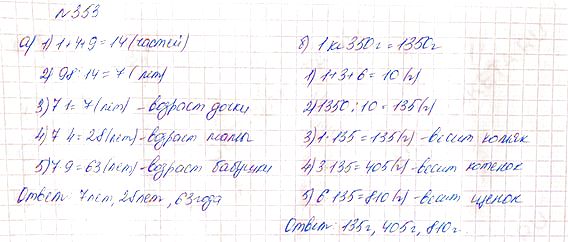 N353
а) 1) 1+4+9=14 (частей)
2) 98:14=7 (лет)
3) 7·1=7 (лет) - возраст дочки
4) 7·4=28 (лет) - возраст мамы
5) 7·9=63 (лет) - возраст бабушки
Ответ: 7 лет, 28 лет, 63 года
б) 1 кг 350 г = 1350 г
1) 1+3+6=10 (ч)
2) 1350:10=135 (г)
3) 1·135=135 (г) - весит хомяк
4) 3·135=405 (г) - весит котенок
5) 6·135=810 (г) - весит щенок
Ответ: 135 г, 405 г, 810 г.